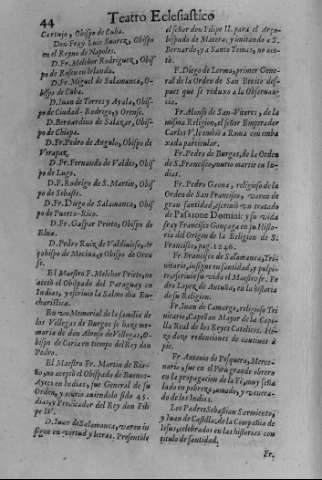 44 Teatro Eclesiastico
Cartujo, Obispo de Cuba.
Don Frey Luis Suarez, Obispo
en el Reyno de Napoles.
D. Fr. Melchor Rodriguez, Obispo
de Rosen en Irlanda.
D. Fr. Miguel de Salamanca, Obispo
de Cuba.
D. Iuan de Torres y Ayala, Obispo
de Ciudad-Rodrigo, y Orense.
D. Bernardino de Salazar, Obispo
de Chiapa.
D. Fr. Pedro de Angulo, Obispo de
Verapaz.
D. Fr. Fernando de Valdès, Obispo
de Lugo.
D. F. Rodrigo de S. Martin, Obispo
de Sebaste.
D. Fr. Diego de Salamanca, Obispo
de Puerto-Rico.
D. Fr. Gaspar Prieto, Obispo de
Elna.
D. Pedro Ruiz de Valdivieso, Arçobispo
de Mecina, y Obispo de Orense.
El Maestro F. Melchor Prieto, no
acetò el Obispado del Paraguay en
Indias, y escriviò la Salmodia Eucharistica.
En vn Memorial de la familia de
los Villegas de Burgos se haze memoria
de don Alonso de Villegas, Obispo
de Coria en tiempo del Rey don
Pedro.
El Maestro Fr. Martin de
no acetò el Obispado de Buenos-Ayres
en Indias, fue General de su
Orden, y murio aviendolo sido 45.
dias, y Predicador del Rey don Filipe
IV.
D. Iuan de Salamanca, varon insigne
en virtud y letras. Presentole
el señor don Filipe II. para el Arçobispado
de Matera, y imitando a S.
Bernardo, y a Santo Tomas, no acetò.
F. Diego de Lerma, primer General
de la Orden de San Benito despues
que se reduxo a la Observancia.
Fr. Alonso de San-Vitores, de la
misma Religion, el señor Emperador
Carlos V. le embiò a Roma con embaxada
particular.
Fr. Pedro de Burgos, de la Orden
de S. Francisco, murio martir en Indias.
Fr. Pedro Gaona, religioso de la
Orden de San Francisco, varon de
gran santidad, escrivio vn tratado
de Passione Domini: y su vida
Fr. Francisco Gonçaga en su Historia
del Origen de la Religion de S.
Francisco, pag. 1246.
Fr. Francisco de Salamanca, Trinitario,
insigne en santidad, y pulpito,
escrivio su vida el Maestro Fr. Pedro
Lopez de Altuna, en la historia
de su Religion.
Fr. Iuan de Camargo, religioso Trinitario,
Capellan Mayor de la Capilla
Real de los Reyes Catolicos. Hizo
doze redenciones de cautivos a
pie.
Fr. Antonio de Pesquera, Mercenario,
fue en el Piru grande obrero
en la propagacion de la Fè, muy señalado
en pobreza, amado, y venerado
de los Indios.
Los Padres Sebastian Sarmiento,
y Iuan de Castilla, de la Compañia de
Iesus, celebrados en las historias con
titulo de santidad.
Fr.